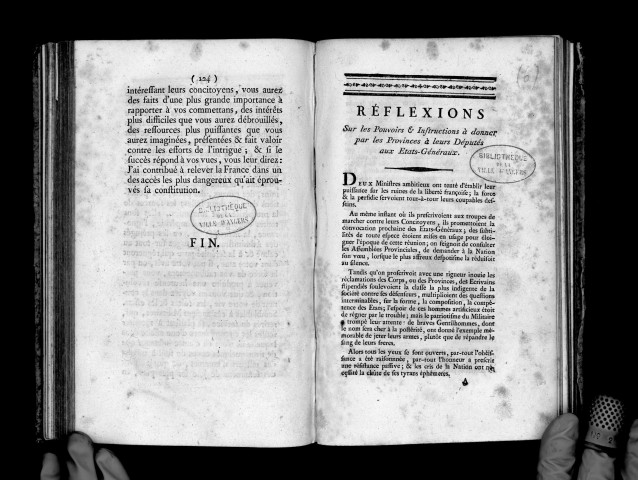 ( 224 )
intéressant leurs concitoyens, vous aurez
des faits d'une plus grande importance à
rapporter à vos commettans, des intérêts
plus difficiles que vous aurez débrouillés,
des ressources plus puissantes que vous
aurez imaginées, présentées & fait valoir
contre les efforts de l'intrigue ; & si le
succès répond à vos vues, vous leur direz :
J'ai contribué à relever la France dans un
des accès les plus dangereux qu'ait éprou-
vés sa constitution.
BIBLIOTHÈQUE
DE LA
VILLE D'ANGERS
FIN.
RÉFLEXIONS
Sur les Pouvoirs & Instructions à donner
par les Provinces à leurs Députés
aux Etats-Généraux.
BIBLIOTHÈQUE
DE LA
VILLE D'ANGERS
DEUX Ministres ambitieux ont tenté d'établir leur
puissance sur les ruines de la liberté françoise ; la force
& la perfidie servoient tour-à-tour leurs coupables des-
seins.
Au même instant où ils prescrivoient aux troupes de
marcher contre leurs Concitoyens, ils promettoient la
convocation prochaine des Etats-Généraux ; des subti-
lités de toute espece étoient mises en usage pour éloi-
gner l'époque de cette réunion ; on feignoit de consulter
les Assemblées Provinciales, de demander à la Nation
son vœu, lorsque le plus affreux despotisme la réduisoit
au silence.
Tandis qu'on proscrivoit avec une rigueur inouie les
réclamations des Corps, ou des Provinces, des Ecrivains
stipendiés soulevoient la classe la plus indigente de la
société contre ses défenseurs, multiplioient des questions
interminables, sur la forme, la composition, la compé-
rence des Etats ; l'espoir de ces hommes artificieux étoit
de régner par le trouble ; mais le patriotisme du Militaire
a trompé leur attente : de braves Gentilhommes, dont
le nom sera cher à la postérité, ont donné l'exemple mé-
morable de jeter leurs armes, plutôt que de répandre le
sang de leurs freres.
Alors tous les yeux se sont ouverts, par-tout l'obéis-
sance a été raisonnée, par-tout l'honneur a prescrit
une résistance passive ; & les cris de la Nation ont
opéré la chûte de ses tyrans éphémeres.
A